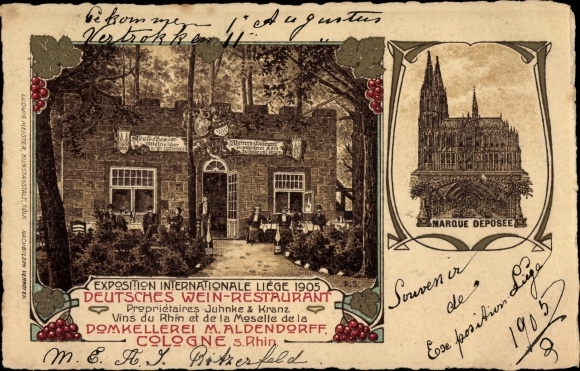 Gekommen 1e Augustus
Vertrokken 11 "
Deutsches
Weinrestaurant
EXPOSITION INTERNATIONALE LIÈGE 1905
DEUTSCHES WEIN-RESTAURANT
Propriétaires Juhnke & Kranz
Vins du Rhin et de la Moselle de la
DOMKELLEREI M. ALDENDORFF,
COLOGNE s.Rhin.
M. E. A. J. Bitzerfeld
MARQUE DEPOSÉE
Souvenir
de
Exposition Luge
1905
8
LUDWIG MEISTER, KUNSTANSTALT, KÖLN. NACHBILDEN VERBOTEN.